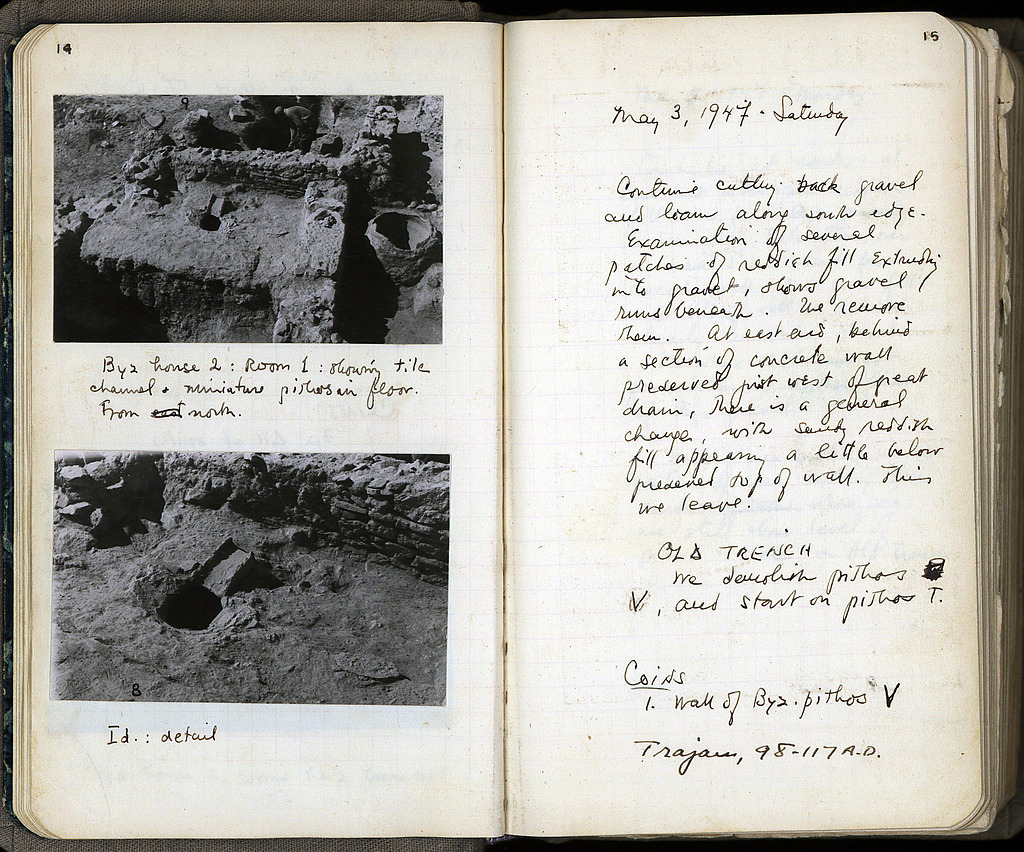 14
9
Byz house 2: Room 1: showing tile
channel & miniature pithos in floor.
From east north.
8
Id.: detail
15
May 3, 1947 · Saturday
Continue cutting back gravel
and loam along south edge.
Examination of several
patches of reddish fill extruding
into gravel, shows gravel
runs beneath. We remove
them. At east end, behind
a section of concrete wall
preserved just west of great
drain, there is a general
change, with sandy reddish
fill appearing a little below
preserved top of wall. This
we leave.
OLD TRENCH
We demolish pithos
V, and start on pithos T.
Coins
1. Wall of Byz. pithos V
Trajan, 98-117 A.D.